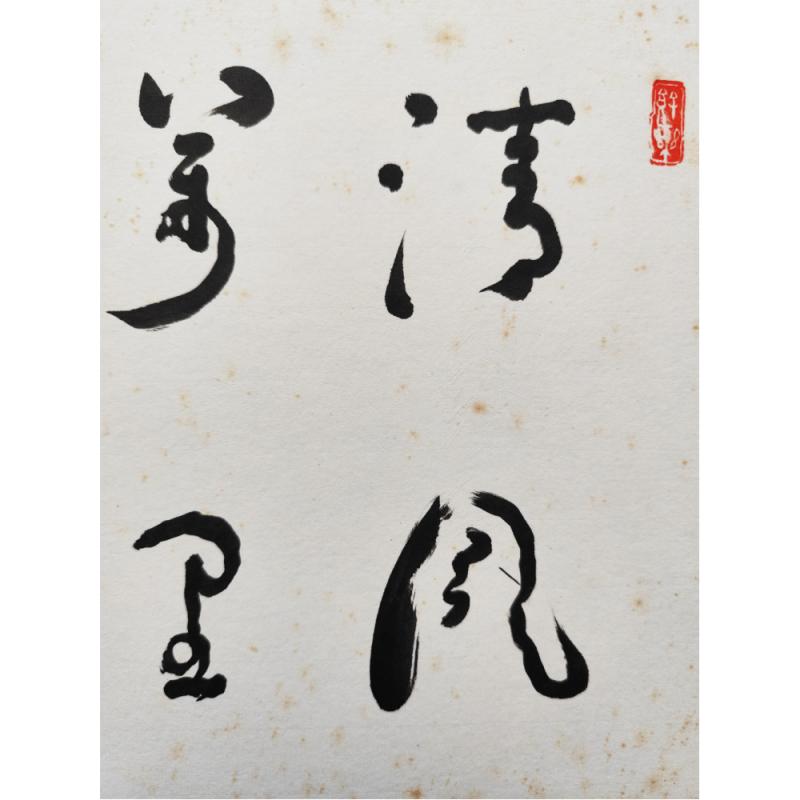 清風
萬里